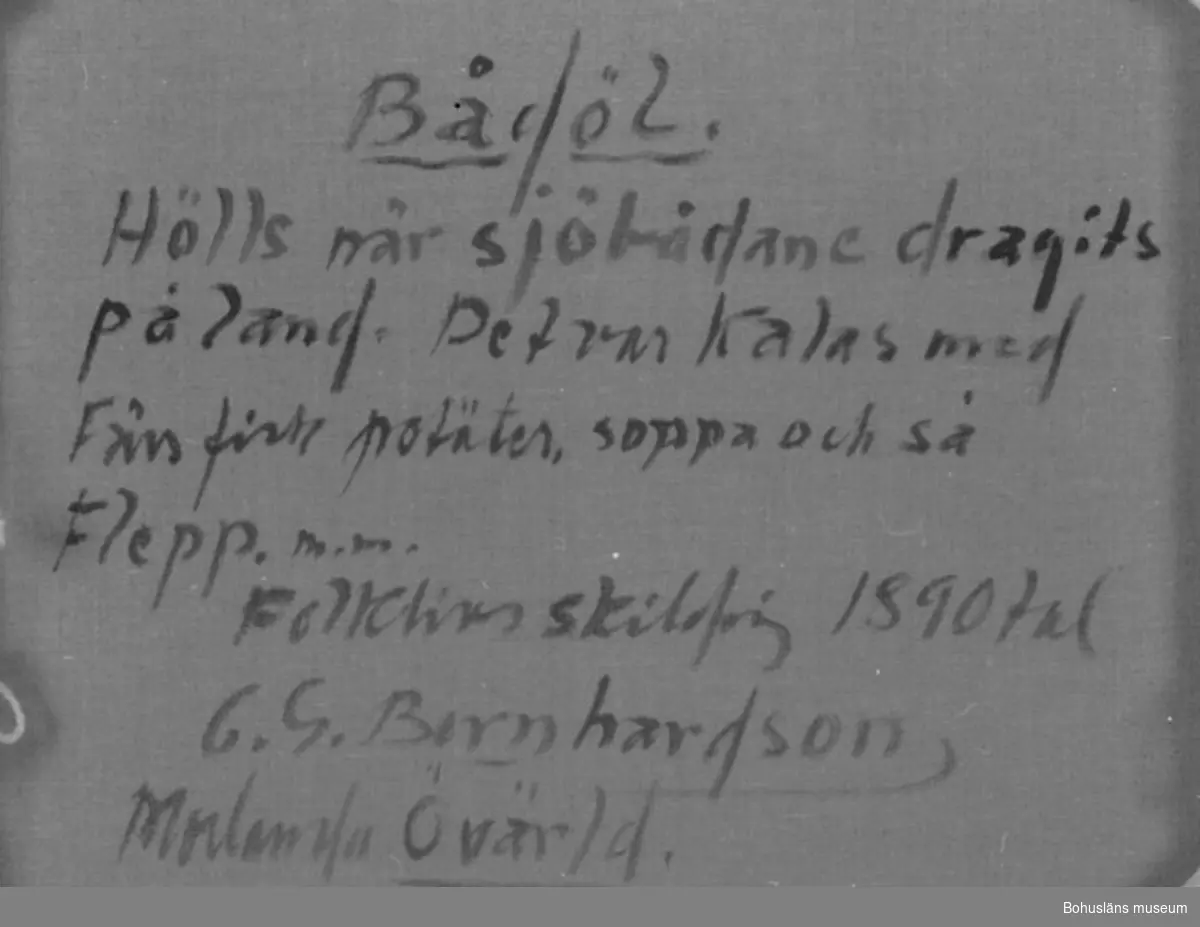 Bådöl.
Hölls när sjöbådane dragits
på land. Det var Kalas med
Färs fisk potäter, soppa och så
Flepp. m.m.
Folklivsskildring 1890 tal
C.G. Bernhardson,
Morlanda Övärld.
Bohusläns museum